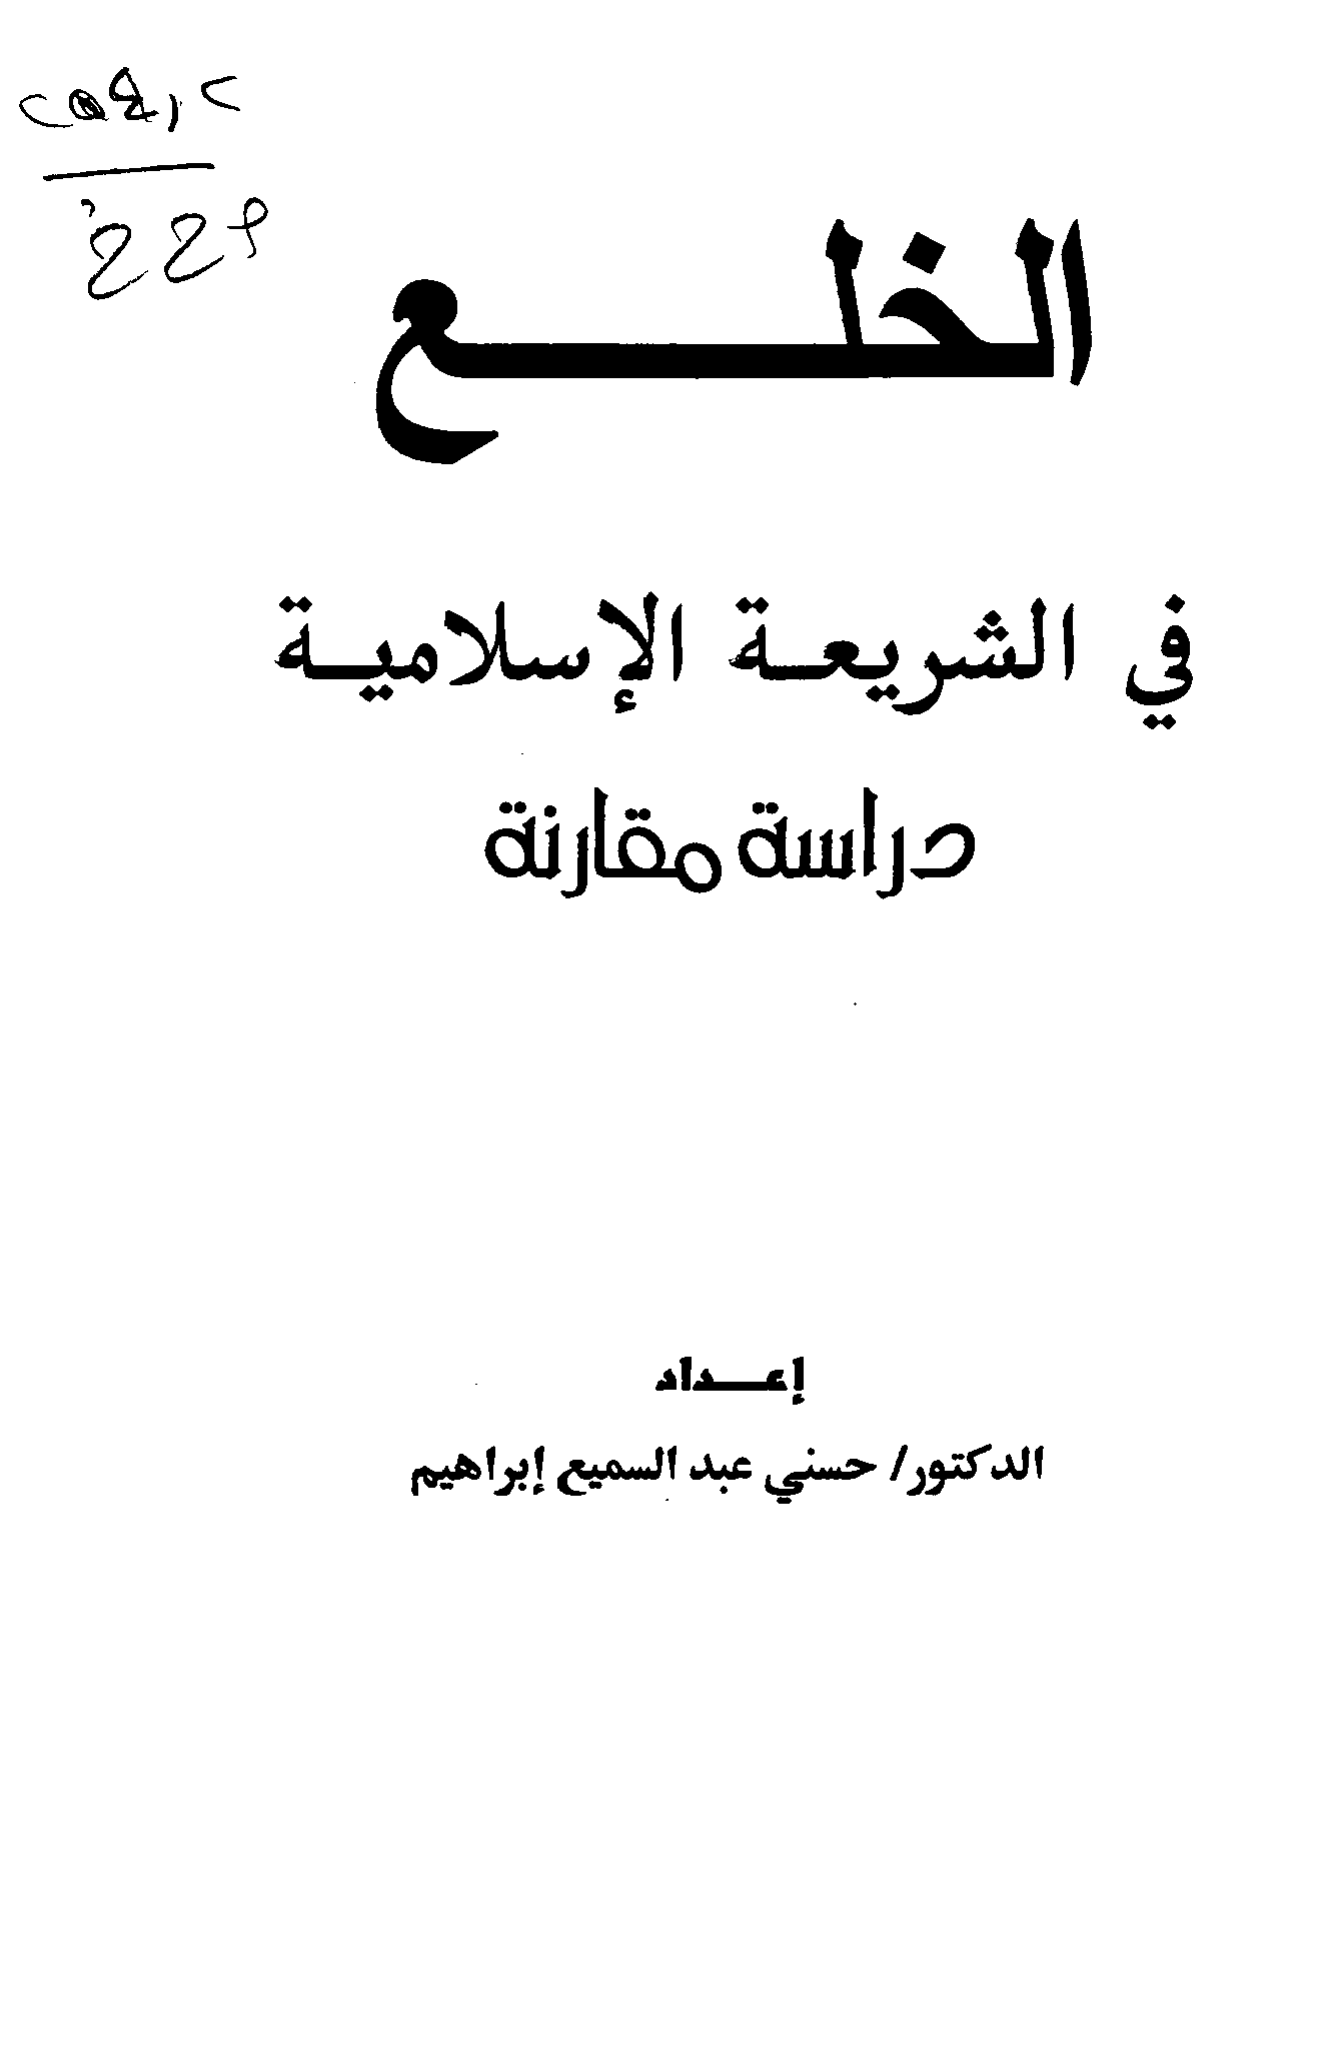 الخلع
في الشريعة الإسلامية
دراسة مقارنة
إعداد
الدكتور/ حسني عبد السميع إبراهيم